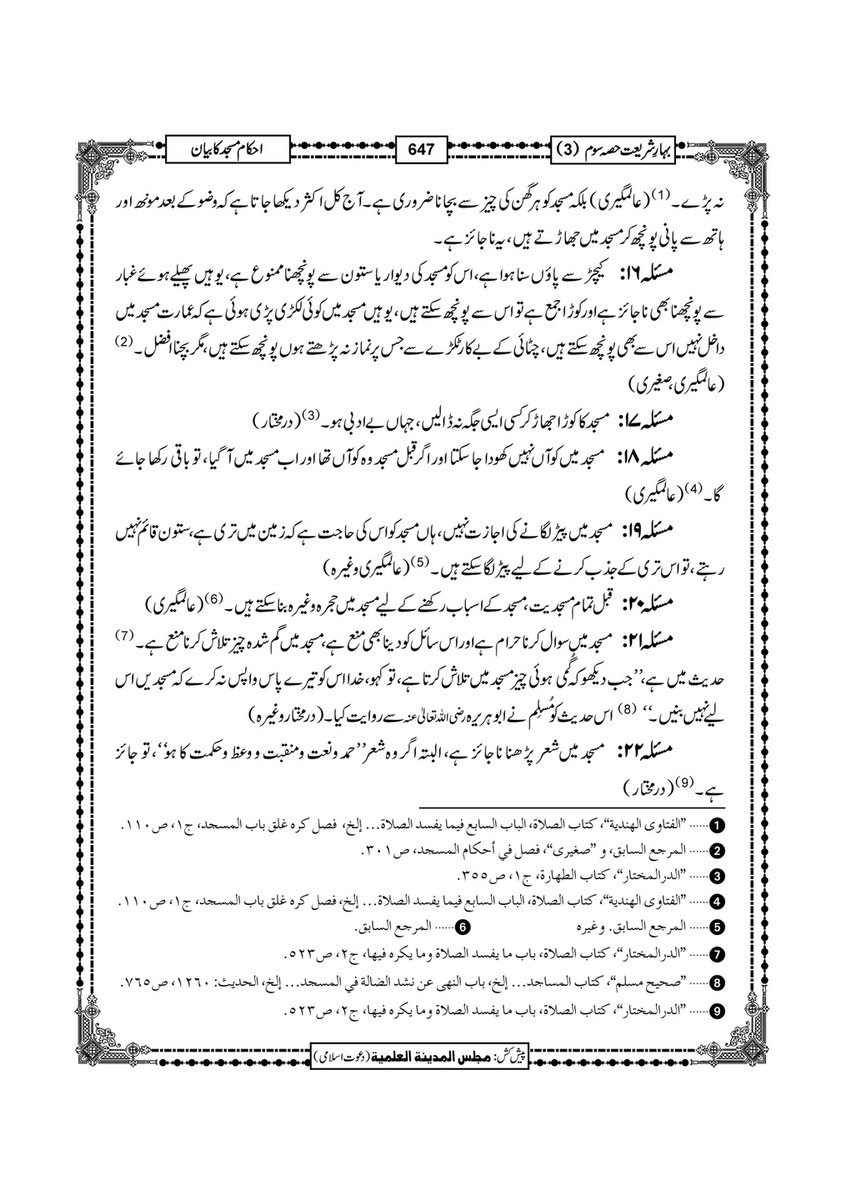 بہارِ شریعت حصہ سوم (3)
647
احکام مسجد کا بیان
نہ پڑے۔(1) (عالمگیری) بلکہ مسجد کو ہر گھن کی چیز سے بچانا ضروری ہے۔ آج کل اکثر دیکھا جاتا ہے کہ وضو کے بعد مونھ اور
ہاتھ سے پانی پونچھ کر مسجد میں جھاڑتے ہیں، یہ ناجائز ہے۔
مسئلہ ۱۶: کیچڑ سے پاؤں سنا ہوا ہے، اس کو مسجد کی دیوار یا ستون سے پونچھنا ممنوع ہے، یوہیں پھیلے ہوئے غبار
سے پونچھنا بھی ناجائز ہے اور کوڑا جمع ہے تو اس سے پونچھ سکتے ہیں، یوہیں مسجد میں کوئی لکڑی پڑی ہوئی ہے کہ عمارت مسجد میں
داخل نہیں اس سے بھی پونچھ سکتے ہیں، چٹائی کے بے کار ٹکڑے سے جس پر نماز نہ پڑھتے ہوں پونچھ سکتے ہیں، مگر بچنا افضل۔(2)
(عالمگیری، صغیری)
مسئلہ ۱۷: مسجد کا کوڑا جھاڑ کر کسی ایسی جگہ نہ ڈالیں، جہاں بے ادبی ہو۔(3) (درمختار)
مسئلہ ۱۸: مسجد میں کوآں نہیں کھودا جا سکتا اور اگر قبل مسجد وہ کوآں تھا اور اب مسجد میں آگیا، تو باقی رکھا جائے
گا۔(4) (عالمگیری)
مسئلہ ۱۹: مسجد میں پیڑ لگانے کی اجازت نہیں، ہاں مسجد کو اس کی حاجت ہے کہ زمین میں تری ہے، ستون قائم نہیں
رہتے، تو اس تری کے جذب کرنے کے لیے پیڑ لگا سکتے ہیں۔(5) (عالمگیری وغیرہ)
مسئلہ ۲۰: قبل تمام مسجدیت، مسجد کے اسباب رکھنے کے لیے مسجد میں حجرہ وغیرہ بنا سکتے ہیں۔(6) (عالمگیری)
مسئلہ ۲۱: مسجد میں سوال کرنا حرام ہے اور اس سائل کو دینا بھی منع ہے، مسجد میں گم شدہ چیز تلاش کرنا منع ہے۔(7)
حدیث میں ہے، ”جب دیکھو کہ گُمی ہوئی چیز مسجد میں تلاش کرتا ہے، تو کہو، خدا اس کو تیرے پاس واپس نہ کرے کہ مسجدیں اس
لیے نہیں بنیں۔“ (8) اس حدیث کو مُسلِم نے ابوہریرہ رضی اللہ تعالیٰ عنہ سے روایت کیا۔ (درمختار وغیرہ)
مسئلہ ۲۲: مسجد میں شعر پڑھنا ناجائز ہے، البتہ اگر وہ شعر ”حمد و نعت و منقبت و وعظ و حکمت کا ہو“، تو جائز
ہے۔(9) (درمختار)
1 ...... ”الفتاوی الهندية“، کتاب الصلاة، الباب السابع فیما یفسد الصلاة... إلخ، فصل کره غلق باب المسجد، ج۱، ص۱۱۰.
2 ...... المرجع السابق، و ”صغیری“، فصل في أحکام المسجد، ص۳۰۱.
3 ...... ”الدرالمختار“، کتاب الطهارة، ج۱، ص۳۵۵.
4 ...... ”الفتاوی الهندية“، کتاب الصلاة، الباب السابع فیما یفسد الصلاة... إلخ، فصل کره غلق باب المسجد، ج۱، ص۱۱۰.
5 ...... المرجع السابق. وغیره 6 ...... المرجع السابق.
7 ...... ”الدرالمختار“، کتاب الصلاة، باب ما یفسد الصلاة وما یکره فیها، ج۲، ص۵۲۳.
8 ...... ”صحیح مسلم“، کتاب المساجد... إلخ، باب النهی عن نشد الضالة في المسجد... إلخ، الحدیث: ۱۲۶۰، ص۷۶۵.
9 ...... ”الدرالمختار“، کتاب الصلاة، باب ما یفسد الصلاة وما یکره فیها، ج۲، ص۵۲۳.
پیش کش: مجلس المدینة العلمیة (دعوت اسلامی)